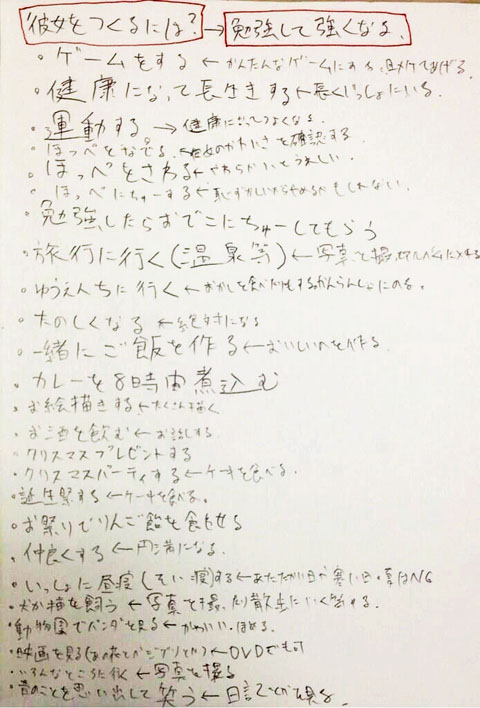 彼女をつくるには?→勉強して強くなる。
・ゲームをする←かんたんなゲームにする、負けてあげる。
・健康になって長生きする←長くいっしょにいる。
・運動する→健康になってつよくなる。
・ほっぺをなでる。←彼女のかわいさを確認する
・ほっぺをさわる←やわらかいとうれしい
・ほっぺにちゅーする←恥ずかしいからやめるかもしれない。
・勉強したらおでこにちゅーしてもらう
・旅行に行く(温泉等)←写真を撮
・ゆうえんちに行く←おかしを食べたりするかんらんしゃにのる。
・たのしくなる←絶対になる
・一緒にご飯を作る←おいしいのを作る
・カレーを8時間煮込む
・お絵描きする←たくさん描く
・お酒を飲む←お話しする
・クリスマスプレゼントする
・クリスマスパーティする←ケーキを食べる。
・誕生祭する←ケーキを食べる。
・お祭りでりんご飴を食べる
・仲良くする←円満になる。
・いっしょに昼寝(そい寝)する←あたたかい日か寒い日・夏はNG
・犬か猫を飼う←写真を撮ったり散歩にいく等する。
・動物園でパンダを見る←かわいい・ほめる。
・映画を見る(とかジブリとか)←DVDでも可
・いろんなところに行く←写真を撮る
・昔のことを思い出して笑う←日記とかを見る。